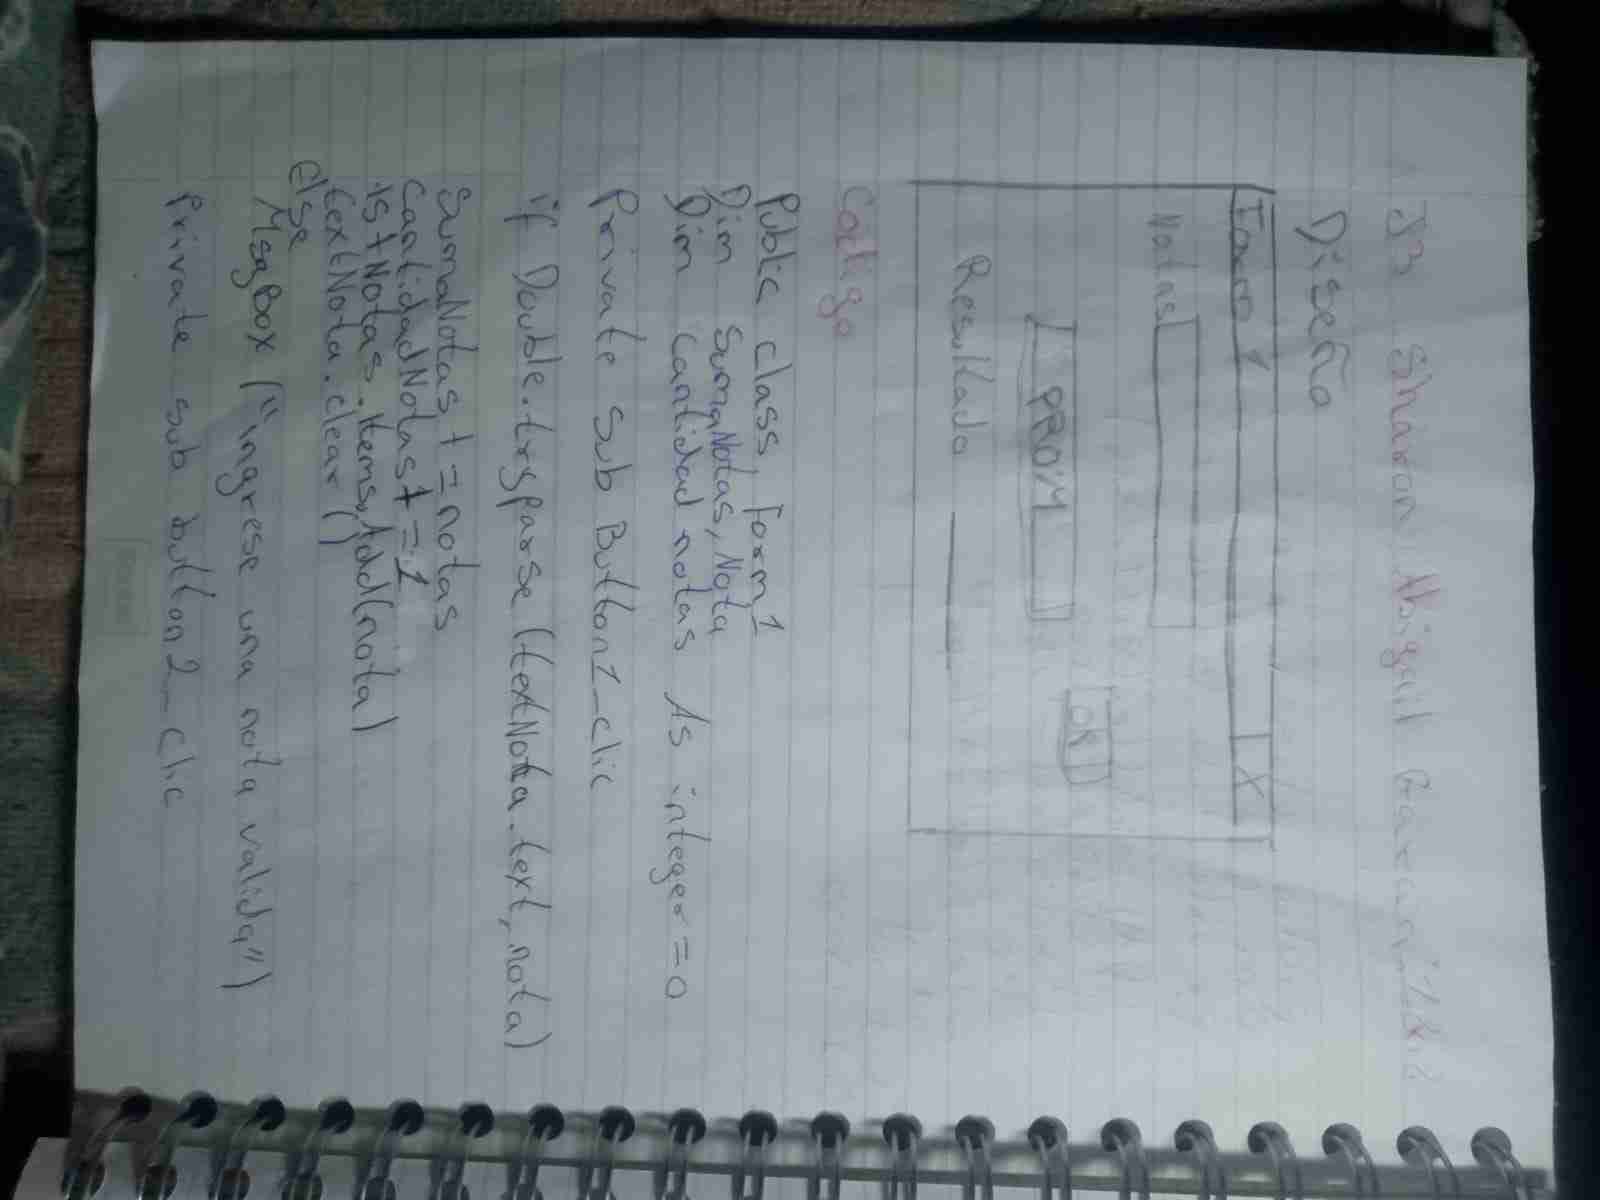 J3 Sharon Abigail
Diseño
Form 1 X
Notas
OK
PROM
Resultado
Codigo
Public class Form1
Dim SumaNotas, Nota
Dim Cantidad notas As integer = 0
Private Sub Button1_clic
if Double.tryparse (textNota.text, nota)
SumaNotas += notas
CantidadNotas += 1
lstNotas.Items.Add(nota)
textNota.clear()
else
MsgBox ("ingrese una nota valida")
Private sub button2_clic